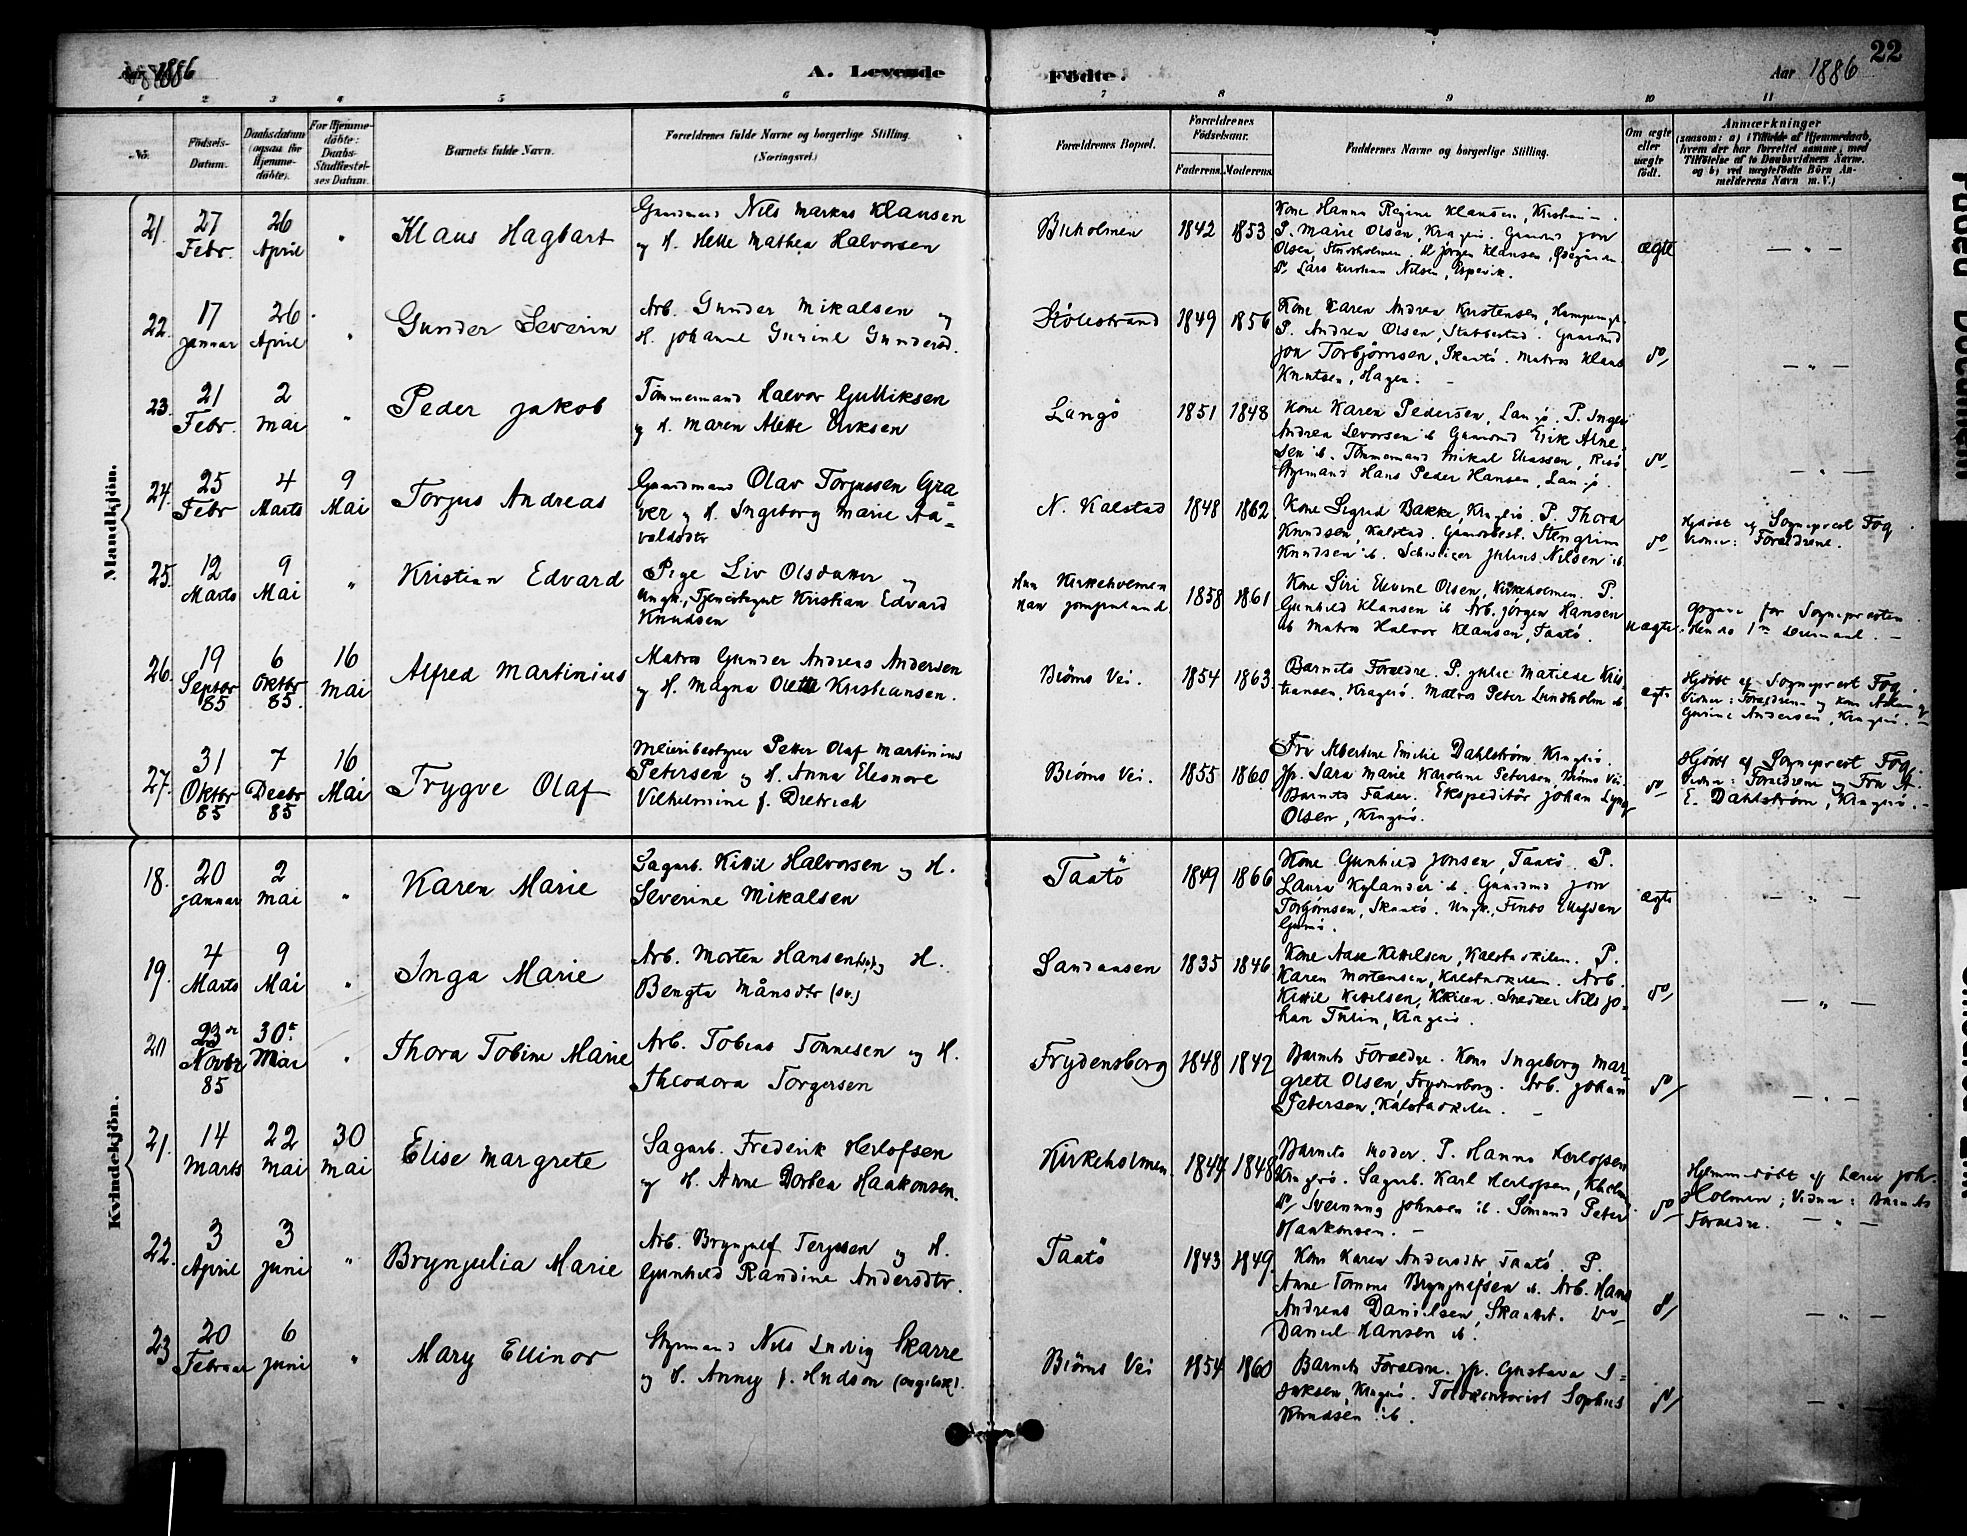 Aar 1886 A. Levende Födte. Aar 1886 22
1 2 3 4 5 6 7 8 9 10 11
No. Födsels-Datum. Daabsdatum (ogsaa for Hjemme-döbte). For Hjemme-döbte: Daabs-Stadfæstel-ses Datum. Barnets fulde Navn. Forældrenes fulde Navne og borgerlige Stilling. (Næringsvei.) Forældrenes Bopæl. Forældrenes Födselsaar. Faderens. Moderens. Faddernes Navne og borgerlige Stilling. Om ægte eller uægte födt. Anmærkninger (saasom: a) i Tilfælde af Hjemmedaab, hvem der har forrettet samme, med Tilföielse af to Daabsvidners Navne. og b) ved uægtefödte Börn An-melderens Navn m. V.)
Mandkjön.
21. 27 Febr. 26 April " Klaus Hagbart
Gaardmand Nils Markus Klausen
og H. Helle Mathea Halvorsen
Buholmen 1842 1853
Kone Hanna Regine Klausen,
P. Marie Olsen, Kragerö. Gaardmd Jon
Olsen, Jörgen Klausen,
Lars Kristian Nilsen, Espevik.
ægte — " —
22. 17 Januar 26 April " Gunder Severin
Arb. Gunder Mikalsen og
H. Johanne Gurine Gundersd.
Stölestrand 1849 1856
Kone Karen Andrea Kristensen,
P. Andrea Olsen, Stabbestad. Gaardmd
Jon Torbjörnsen, Skaatö. Matros Klaus
Knutsen, Hagen. —
do — " —
23. 21 Febr. 2 Mai " Peder Jakob
Tömmermand Halvor Gulliksen
og H. Maren Alette Eriksen
Langö 1851 1848
Kone Karen Pedersen, Langö. P. Inger
Andrea Levorsen ib. Gaardmd Erik Arne-
sen ib. Tömmermand Mikal Eliassen, Risö
Styrmand Hans Peder Hansen, Langö.
do — " —
24. 25 Febr 4 Marts 9 Mai Torjus Andreas
Gaardmand Olav Torjussen Gra-
ver og H. Ingeborg Marie Aa-
valdsdtr
N. Kalstad 1848 1862
Kone Sigrid Bakke, Kragerö. P. Thora
Knudsen, Kalstad. Gaardbest. Stengrim
Knudsen ib. Julius Nilsen ib.
do Hjdöbt af Sogneprest Fog.
Vidner: Forældrene.
25. 12 Marts 9 Mai " Kristian Edvard
Pige Liv Olsdatter og
Ungk., Tjenestegut Kristian Edvard
Knudsen
Hun Kirkeholmen
Han Jomfruland 1858 1861
Kone Siri Elevine Olsen, Kirkeholmen. P.
Gunhild Klausen ib. Arb. Jörgen Hansen
ib. Matros Halvor Klausen, Taatö.
uægte Opgave for Sogneprsten.
Hendes 1ste Leiermaal. —
26. 19 Septbr 85 6 Oktbr 85. 16 Mai Alfred Martinius
Matros Gunder Andreas Andersen
og H. Magna Olette Kristiansen.
Biörns Vei. 1854 1863
Barnets Forældre. P. Julie Matilde Kris-
tiansen, Kragerö. Matros Peter Lundholm ib.
ægte Hjdöbt af Sogneprest Fog.
Vidner: Forældrene og Kone
Gurine Andersen, Kragerö. —
27. 31 Oktbr 85 7 Decbr 85 16 Mai Trygve Olaf
Meieribestyrer Petter Olaf Martinius
Petersen og H. Anna Eleonore
Vilhelmine f. Dietrich
Biörns Vei. 1855 1860
Fru Albertine Emilie Dahlström, Kragerö.
Jfr. Sara Marie Karoline Petersen, Biörns Vei
Barnets Fader. Ekspeditör Johan Lyng
Olsen, Kragerö.
do Hjdöbt af Sogneprest Fog.
Vidner: Forældrene og Fru A.
E. Dahlström, Kragerö. —
Kvindekjön.
18. 20 Januar 2 Mai " Karen Marie
Sagarb. Kittil Halvorsen og H.
Severine Mikalsen
Taatö 1849 1866
Kone Gunhild Jonsen, Taatö. P.
Laura Kylander ib. Gaardmd Jon
Torbjörnsen, Skaatö. Ungk.,
ægte — " —
19. 4 Marts 9 Mai " Inga Marie
Arb. Morten Hansen og H.
Bengta Månsdtr (sv.)
Sandaasen 1835 1846
Kone Aase Kittilsen, Kalstadkilen. P.
Karen Mortensen, Kalstadkilen. Arb.
Kittil Kittilsen, Kkilen. Snedker Nils Jo-
han Tulin, Kragerö.
do — " —
20 23de Novbr 85 30te Mai " Thora Tobine Marie
Arb. Tobias Tönnesen og H.
Theodora Torgersen
Frydensborg 1848 1842
Barnets Forældre. Kone Ingeborg Mar-
grete Olsen, Frydensborg. Arb. Johan
Petersen, Kalstadkilen. —
do — " —
21. 14 Marts 22 Mai 30 Mai Elise Margrete
Sagarb. Frederik Herlofsen
og H. Anne Dorthea Haakonsen.
Kirkeholmen 1844 1848
Barnets Moder. P. Hanna Herlofsen
Kragerö. Sagarb. Karl Herlofsen, Kholm.
do Sveinung Johnsen ib. Sömand Peter
Haakonsen. —
do Hjemmedöbt af Lærer Joh.
Holmen; Vidner: Barnets
Forældre. — " —
22. 3 April 3 Juni " Brynjulia Marie
Arb. Brynjulf Terjesen og H.
Gunhild Randine Andersdtr.
Taatö 1843 1849
Kone Karen Andersdtr Taatö. P.
Anne Tomine Brynjulfsen ib. Arb. Hans
Andreas Danielsen, Skaatö. do
Daniel Hansen ib.
do — " —
23 20 Februar 6 Juni " Mary Ellinor
Styrmand Nils Ludvig Skarre
og H. Anny f. Hudson (engelsk).
Biörns Vei 1854 1860
Barnets Forældre. Jfr. Gustava I-
saksen, Kragerö. Toldkontorist Sophus
Knudsen ib.
do — " —